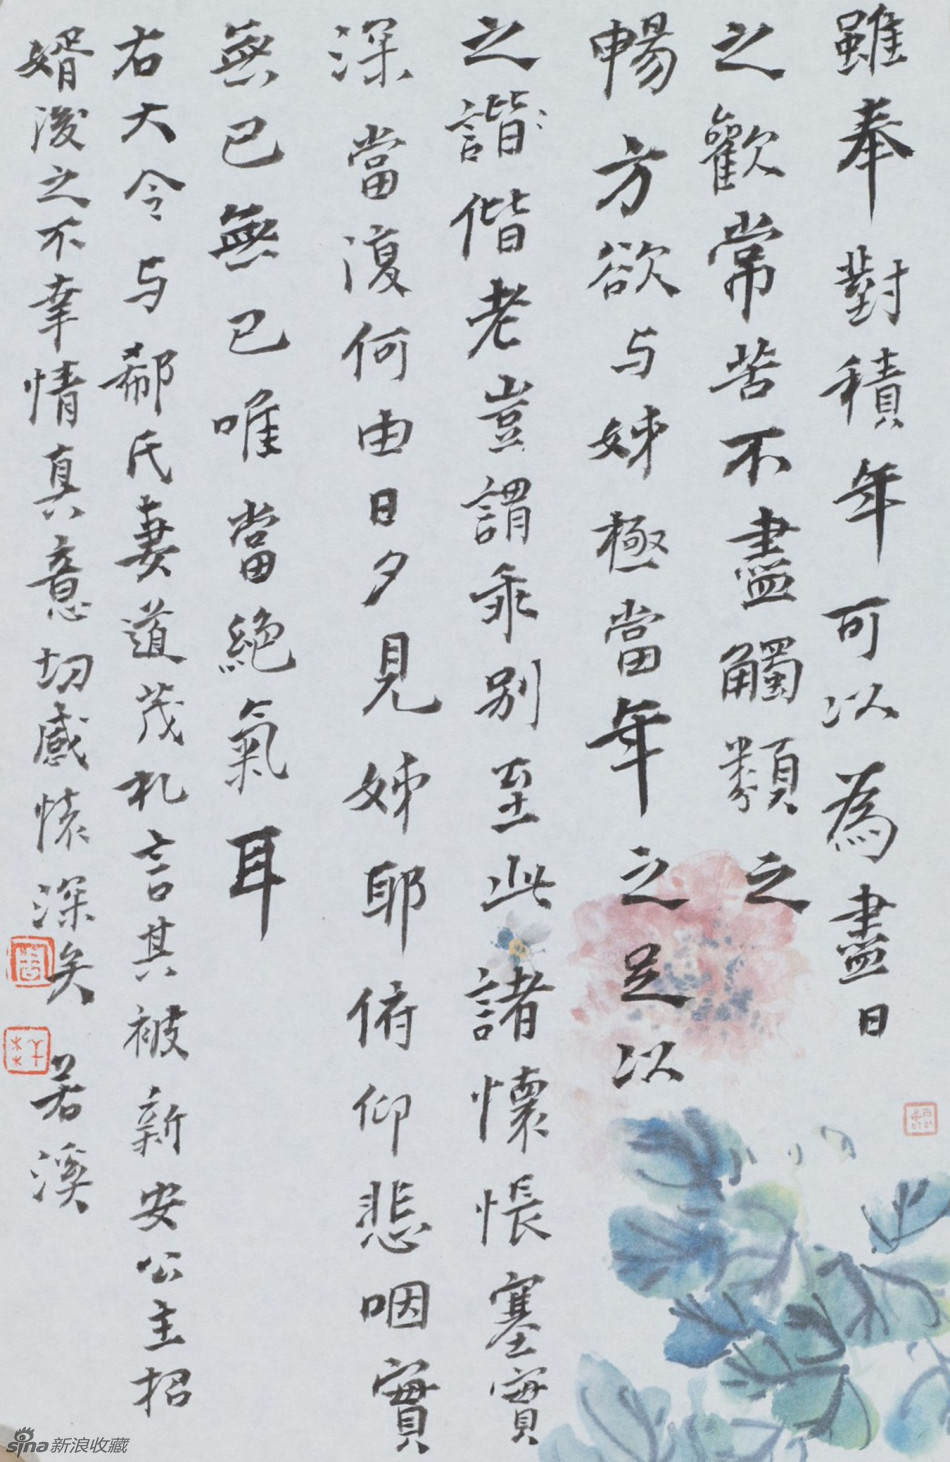 雖奉對積年可以為盡日
之歡常苦不盡觸類之
暢方欲与姊極當年之足以
之諧偕老豈謂乖別至此諸懷悵塞實
深當復何由日夕見姊耶俯仰悲咽實
無已無已唯當絕氣耳
右大令与郗氏妻道茂札言其被新安公主招
婿後之不幸情真意切感懷深矣 若溪
sina新浪收藏